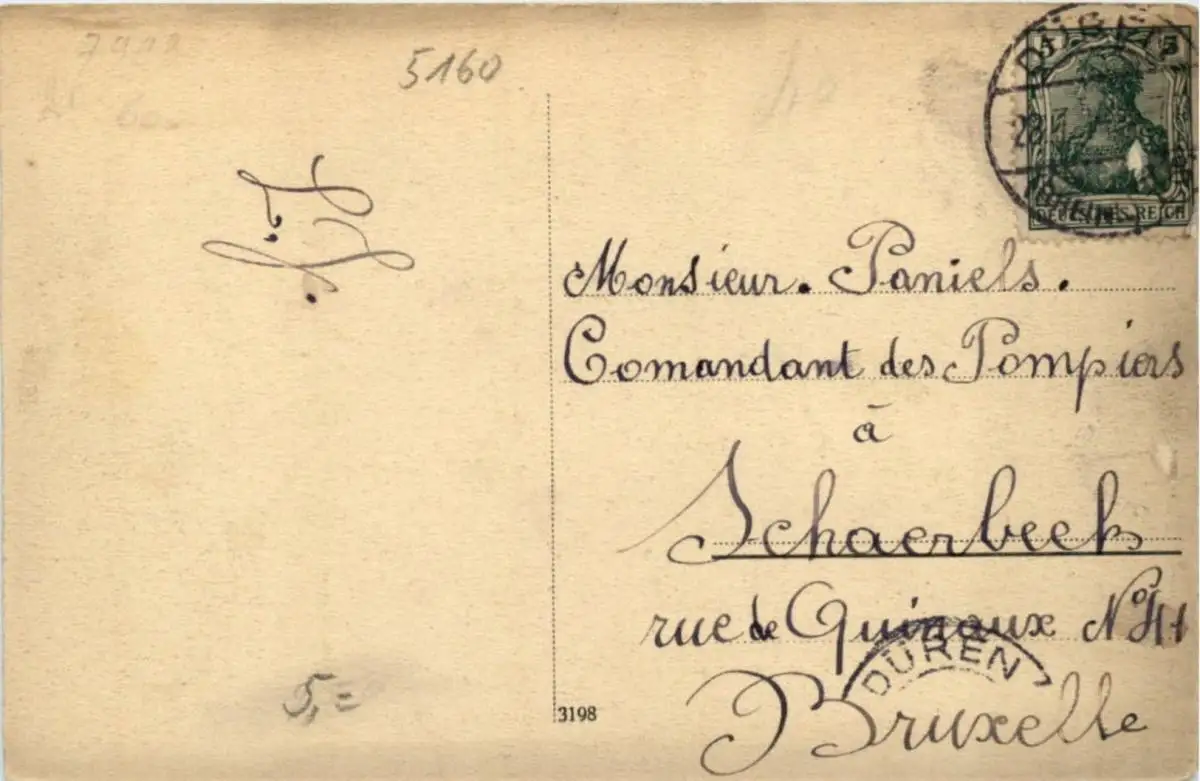 5160
5 5
DÜREN
(RHEINL.)
DEUTSCHES REICH
Monsieur. Paniels.
Comandant des Pompiers
à
Schaerbeek
rue de Quinaux Nº 41
DÜREN
Bruxelle
5,=
3198